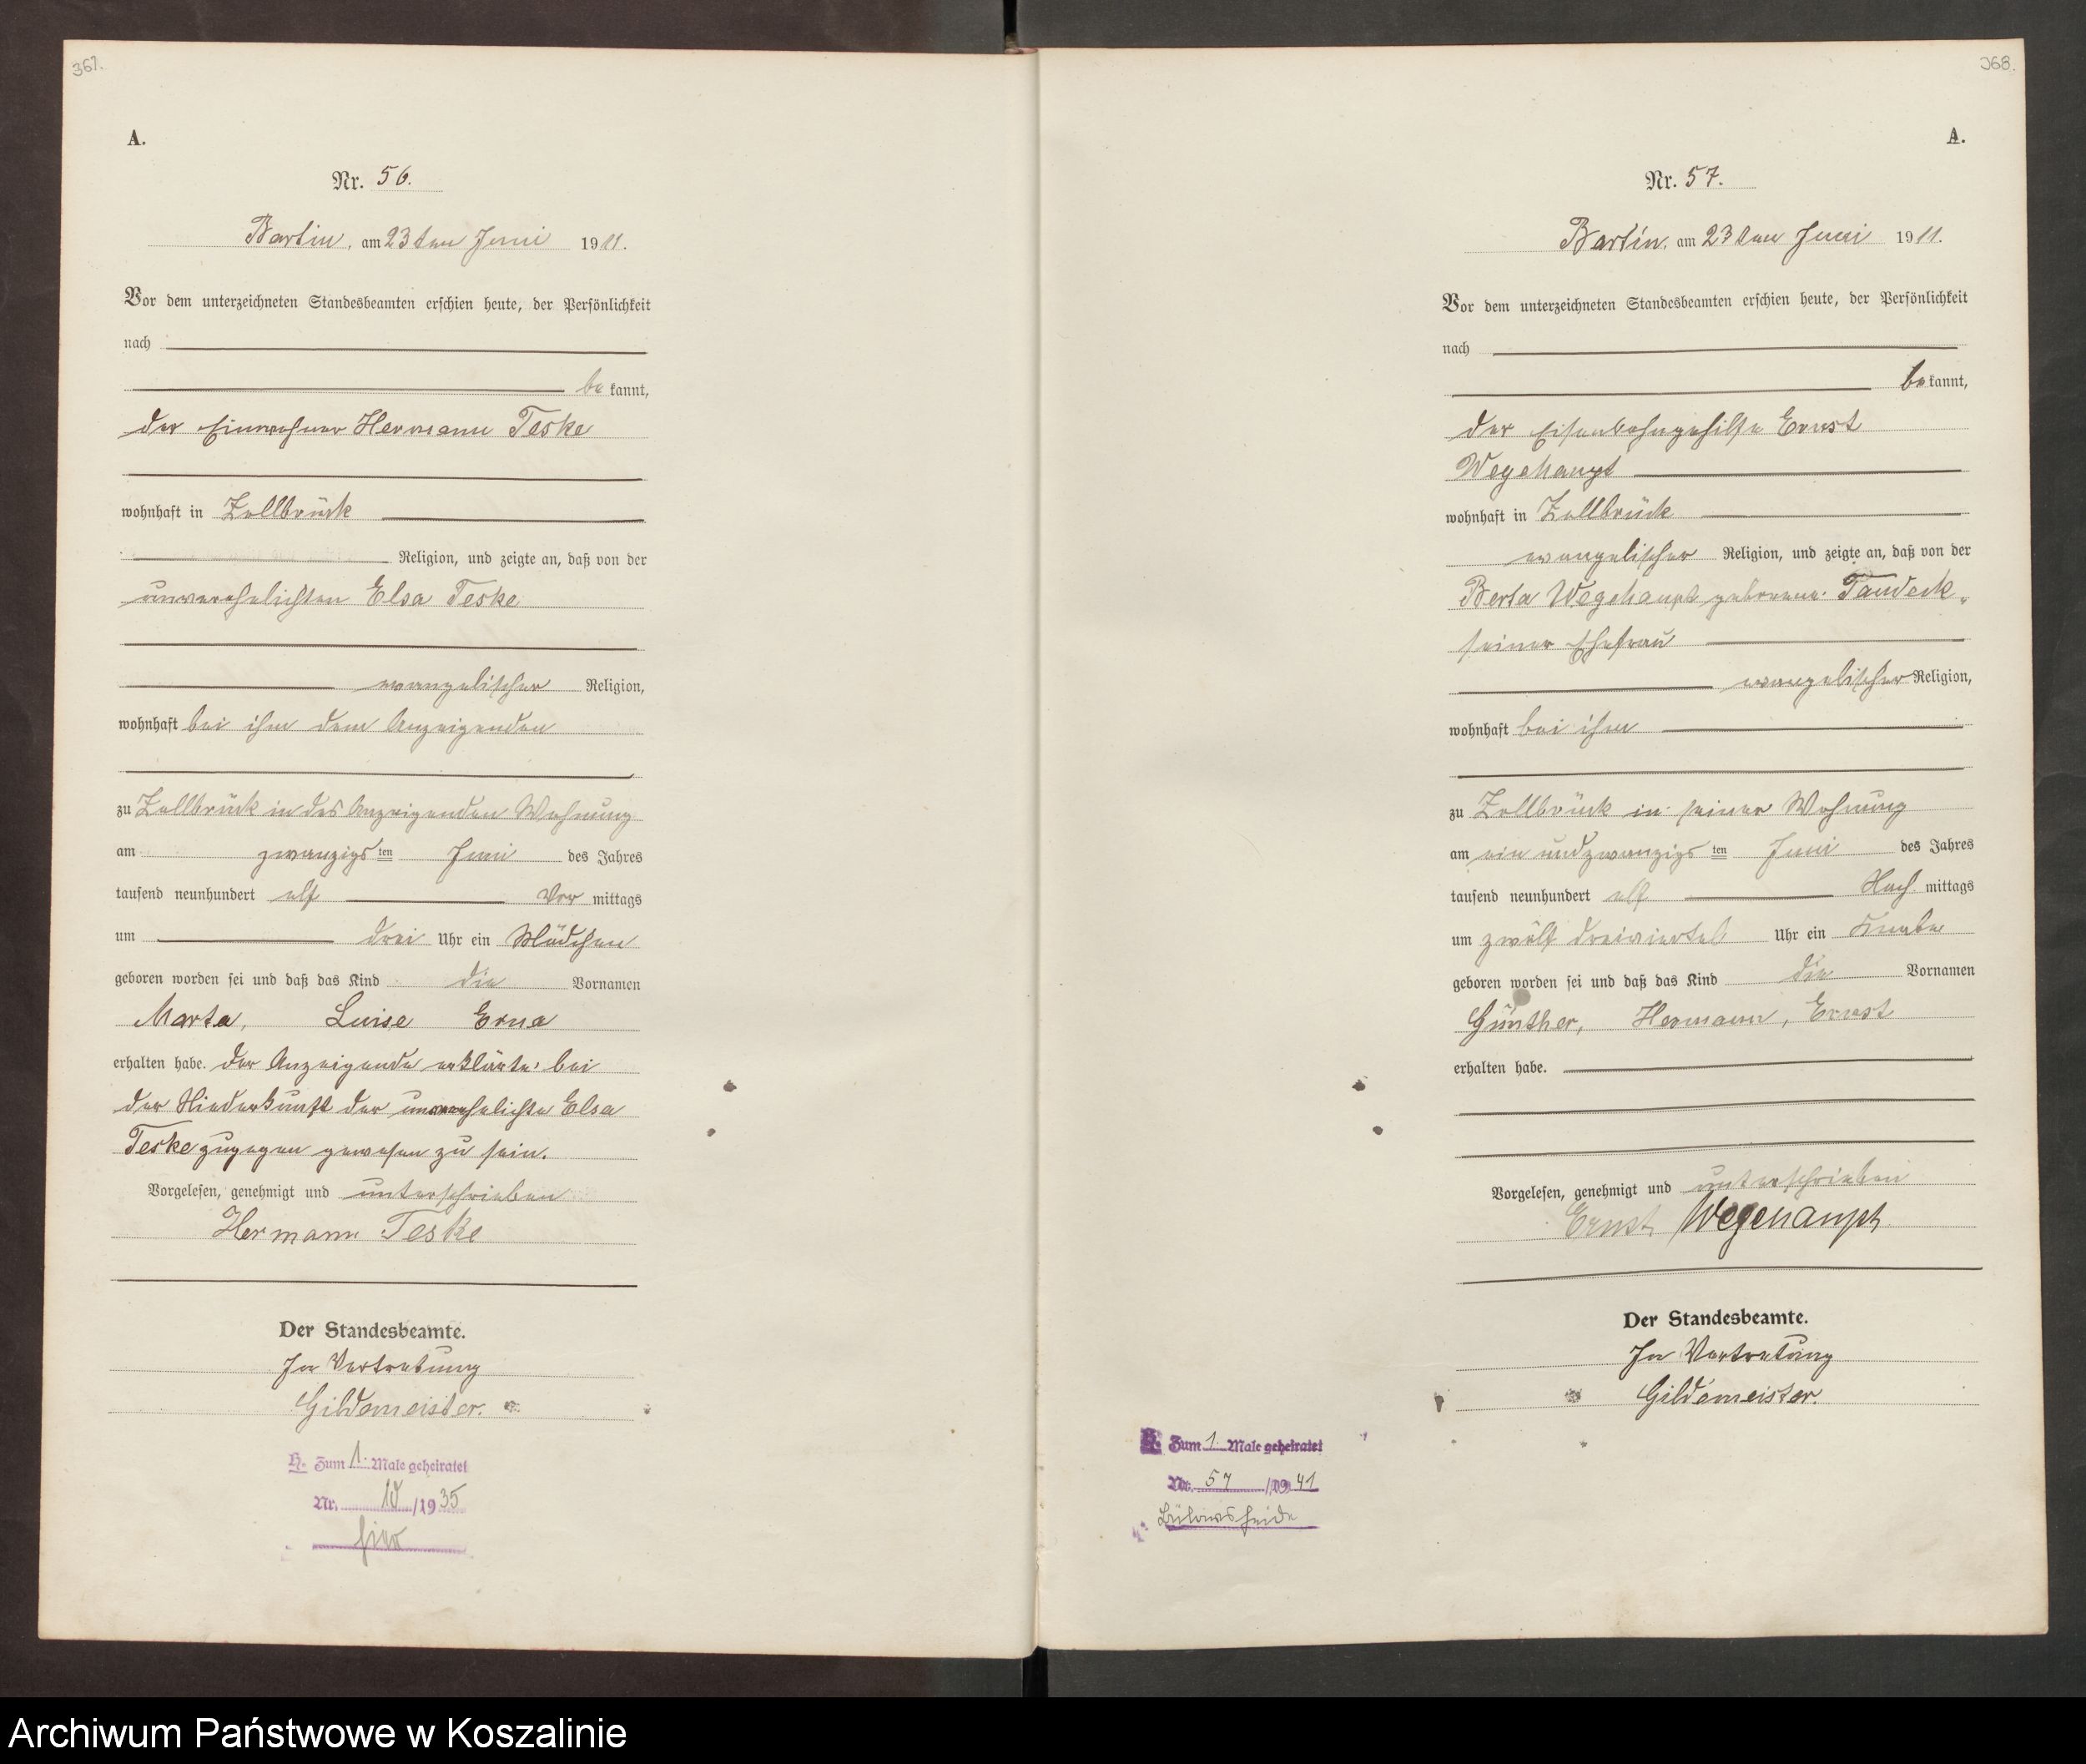 367.
A.
Nr. 56.
Bartin, am 23ten Juni 1911.
Vor dem unterzeichneten Standesbeamten erschien heute, der Persönlichkeit
nach
bekannt,
der Einwohner Hermann Teske
wohnhaft in Zollbrück
Religion, und zeigte an, daß von der
unverehelichten Elsa Teske
evangelischer Religion,
wohnhaft bei ihm dem Anzeigenden
zu Zollbrück in des Anzeigenden Wohnung
am zwanzigsten Juni des Jahres
tausend neunhundert elf Vormittags
um drei Uhr ein Mädchen
geboren worden sei und daß das Kind die Vornamen
Marta, Luise Erna
erhalten habe. Der Anzeigende erklärte, bei
der Niederkunft der unverehelichte Elsa
Teske zugegen gewesen zu sein.
Vorgelesen, genehmigt und unterschrieben
Hermann Teske
Der Standesbeamte.
In Vertretung
Gildemeister.
H. Zum 1. Male geheiratet
Nr. 10/1935
hier
368.
A.
Nr. 57.
Bartin, am 23ten Juni 1911.
Vor dem unterzeichneten Standesbeamten erschien heute, der Persönlichkeit
nach
bekannt,
der Eisenbahngehilfe Ernst
Wegehaupt
wohnhaft in Zollbrück
evangelischer Religion, und zeigte an, daß von der
Berta Wegehaupt geborene Tandeck,
seiner Ehefrau
evangelischer Religion,
wohnhaft bei ihm
zu Zollbrück in seiner Wohnung
am ein und zwanzigsten Juni des Jahres
tausend neunhundert elf Nachmittags
um zwölf dreiviertel Uhr ein Knabe
geboren worden sei und daß das Kind die Vornamen
Günther, Hermann, Ernst
erhalten habe.
Vorgelesen, genehmigt und unterschrieben
Ernst Wegehaupt
Der Standesbeamte.
In Vertretung
Gildemeister.
H. Zum 1. Male geheiratet
Nr. 57/1941
Archiwum Państwowe w Koszalinie